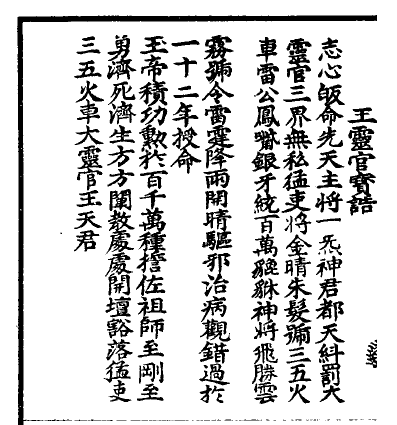 王靈官寳誥
志心皈命先天主將一炁神君都天糾罰大
靈官三界無私猛吏將金睛朱髮號三五火
車雷公鳳嘴銀牙統百萬貔貅神將飛騰雲
霧號令雷霆降雨開晴驅邪治病觀錯過於
一十二年授命
玉帝積功勲於百千萬種誓佐祖師至剛至
勇濟死濟生方方闡教處處開壇豁落猛吏
三五火車大靈官王天君